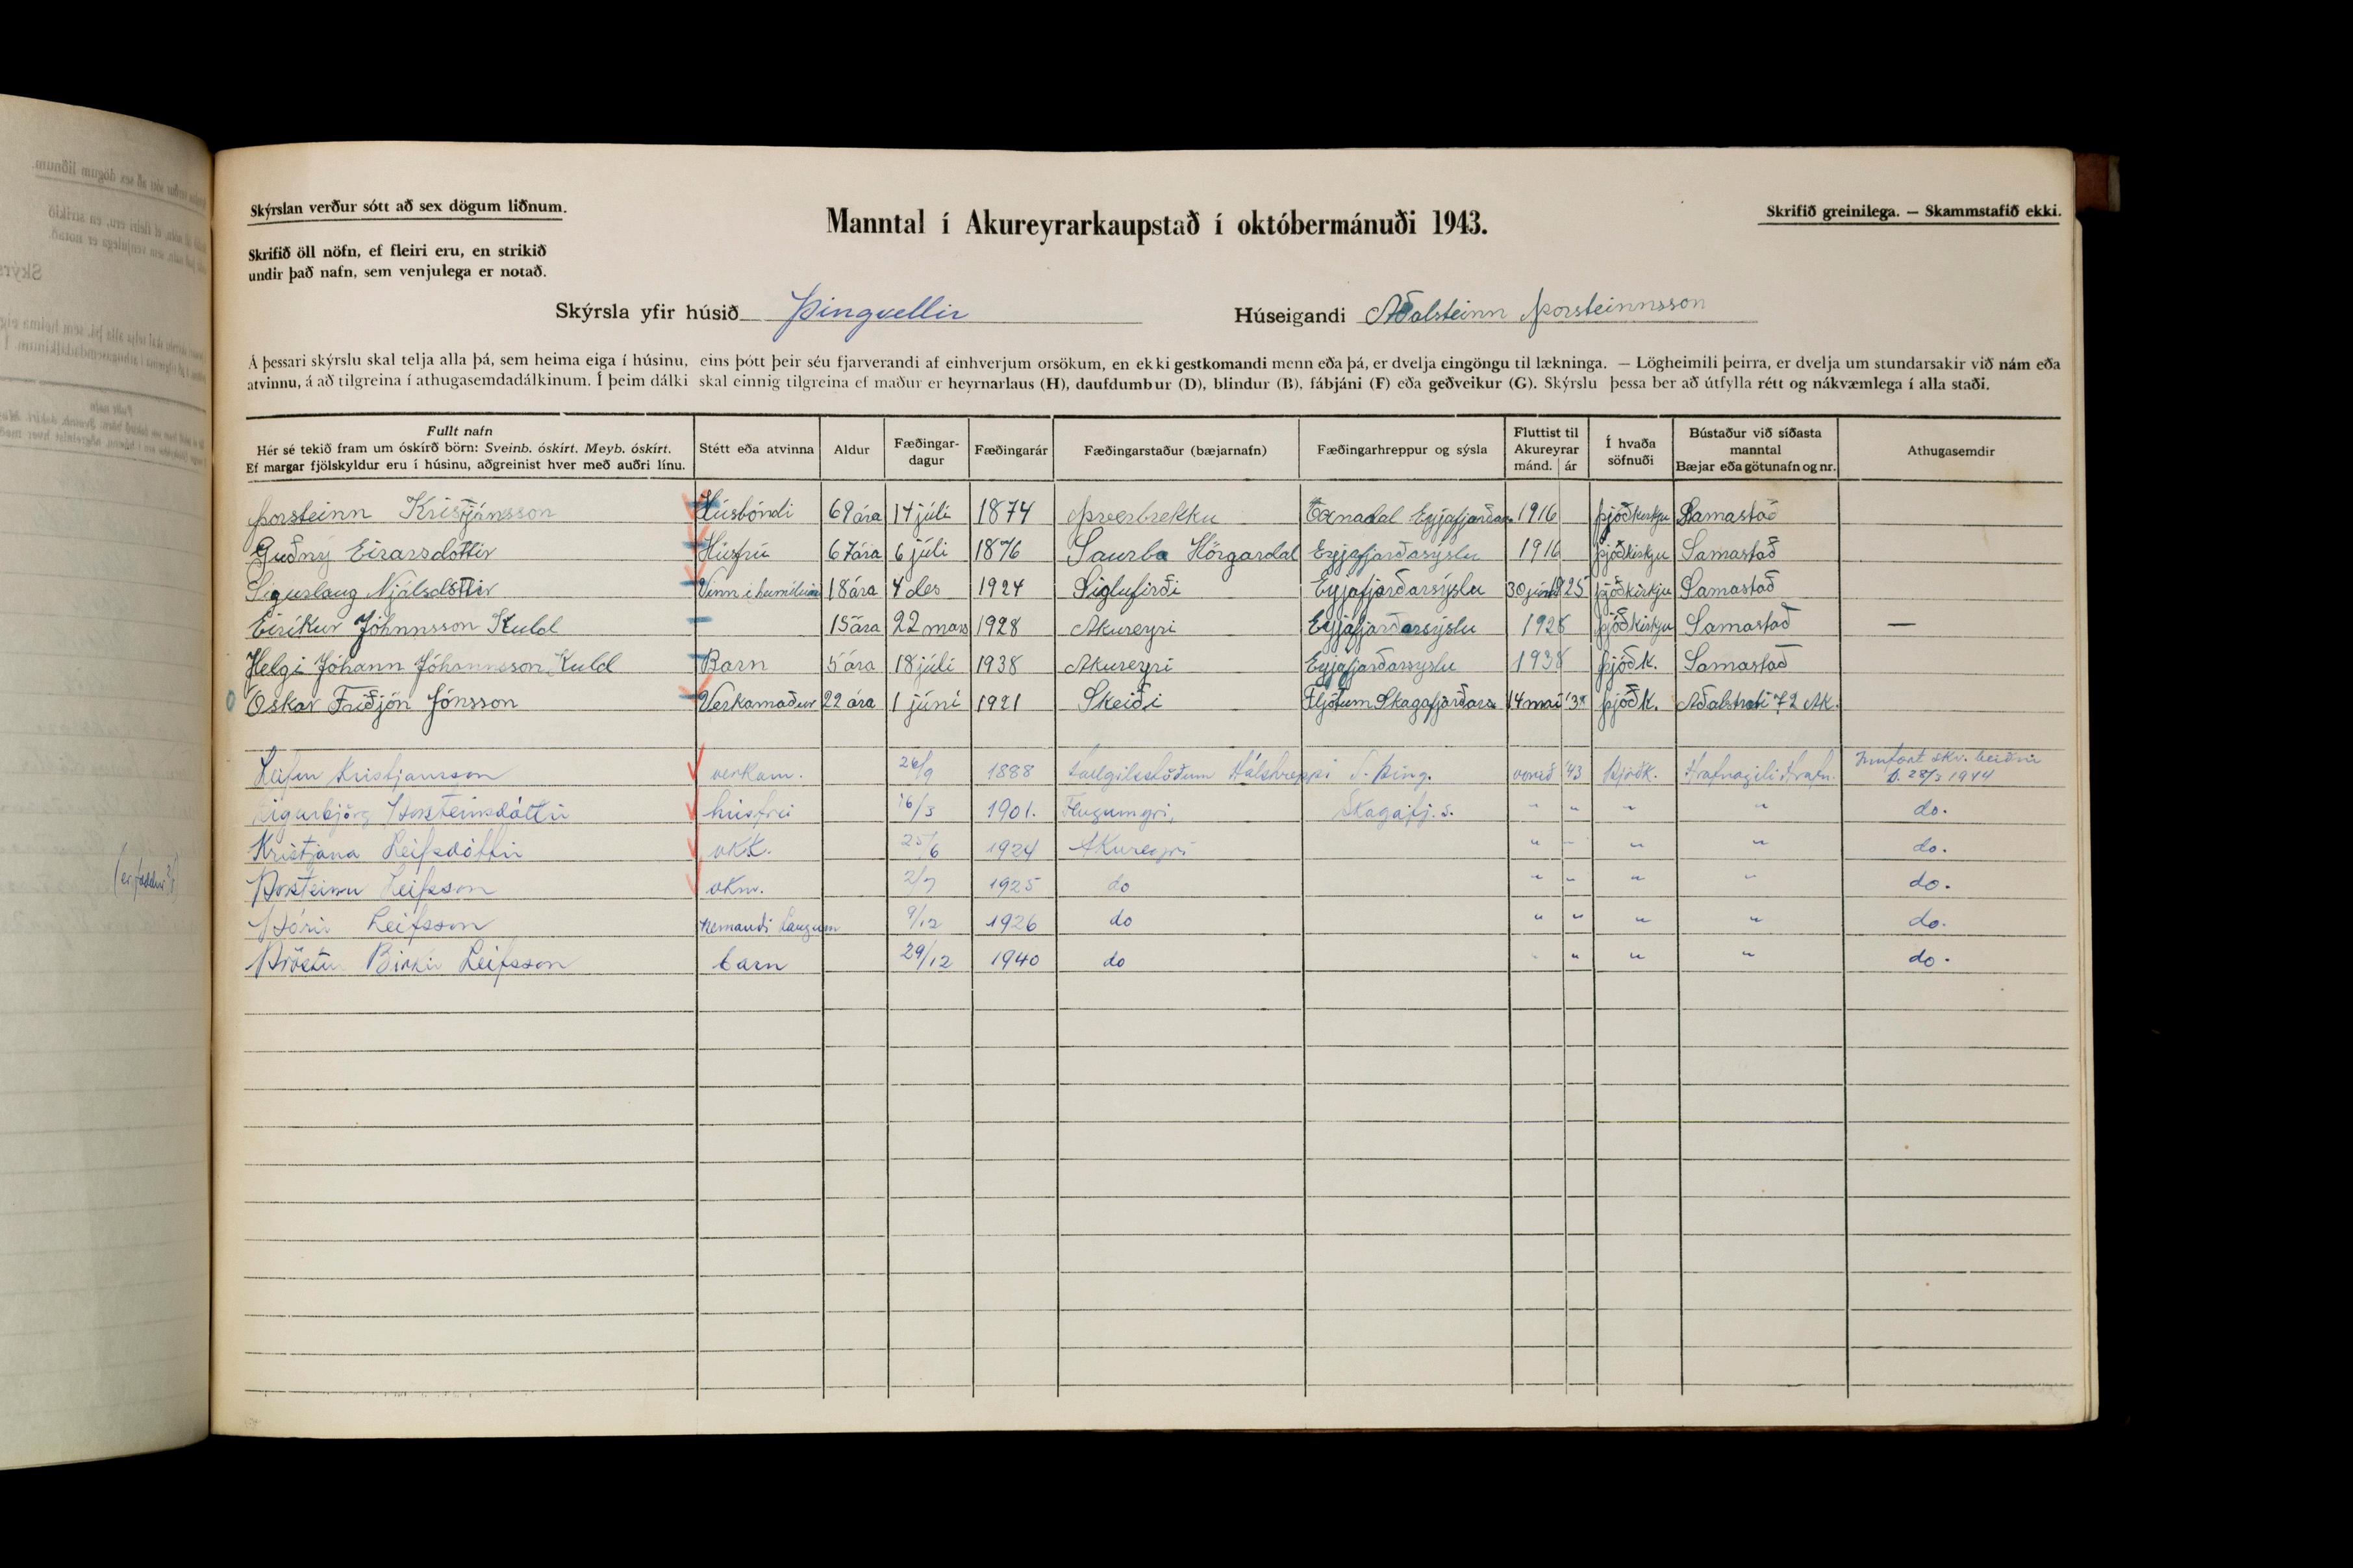 Skýrslan verður sótt að sex dögum liðnum.
Manntal í Akureyrarkaupstað í októbermánuði 1943.
Skrifið greinilega. — Skammstafið ekki.
Skrifið öll nöfn, ef fleiri eru, en strikið
undir það nafn, sem venjulega er notað.
Skýrsla yfir húsið Þingvellir Húseigandi Aðalsteinn Þorsteinnsson
Á þessari skýrslu skal telja alla þá, sem heima eiga í húsinu, eins þótt þeir séu fjarverandi af einhverjum orsökum, en ekki gestkomandi menn eða þá, er dvelja eingöngu til lækninga. — Lögheimili þeirra, er dvelja um stundarsakir við nám eða
atvinnu, á að tilgreina í athugasemdadálkinum. Í þeim dálki skal einnig tilgreina ef maður er heyrnarlaus (H), daufdumbur (D), blindur (B), fábjáni (F) eða geðveikur (G). Skýrslu þessa ber að útfylla rétt og nákvæmlega í alla staði.
Fullt nafn
Hér sé tekið fram um óskírð börn: Sveinb. óskírt. Meyb. óskírt.
Ef margar fjölskyldur eru í húsinu, aðgreinist hver með auðri línu.
Stétt eða atvinna
Aldur
Fæðingar-
dagur
Fæðingarár
Fæðingarstaður (bæjarnafn)
Fæðingarhreppur og sýsla
Fluttist til
Akureyrar
mánd. ár
Í hvaða
söfnuði
Bústaður við síðasta
manntal
Bæjar eða götunafn og nr.
Athugasemdir
Þorsteinn Kristjánsson Húsbóndi 69 ára 17 júlí 1874 Þverbrekku Öxnadal Eyjafjarðars 1916 þjóðkirkju Samastað
Guðný Einarsdóttir Húsfrú 67 ára 6 júlí 1876 Saurbæ Hörgardal Eyjafjarðasýslu 1916 þjóðkirkju Samastað
Sigurlaug Njálsdóttir 18 ára 4 des 1924 Siglufirði Eyjafjarðarsýslu 30 júní 1925 þjóðkirkju Samastað
Eiríkur Jóhnnsson Kuld 15 ára 22 mars 1928 Akureyri Eyjafjarðarsýslu 1928 þjóðkirkju Samastað —
Helgi Jóhann Jóhannsson Kuld Barn 5 ára 18 júlí 1938 Akureyri Eyjafjarðarsyslu 1938 þjóðk. Samastað
Óskar Friðjón Jónsson Verkamaður 22 ára 1 júní 1921 Skeiði Fljótum Skagafjarðars 14 mai '38 þjóðk. Aðalstræti 72 Ak.
Leifur Kristjánsson verkam. 26/9 1888 Hálshreppi S. Þing. vorið '43 Þjóðk. Hrafnagili Hrafn. Innfært skv. beiðni
d. 28/3 1944
Sigurbjörg Þorsteinsdóttir húsfrú 16/3 1901. Flugumýri, Skagafj.s. " " " " do.
Kristjana Leifsdóttir 25/6 1924 Akureyri " " " " do.
Þorsteinn Leifsson vkm. 2/7 1925 do " " " " do.
Þórir Leifsson nemandi Laugum 9/12 1926 do " " " " do.
Þröstur Birkir Leifsson barn 29/12 1940 do " " " do.